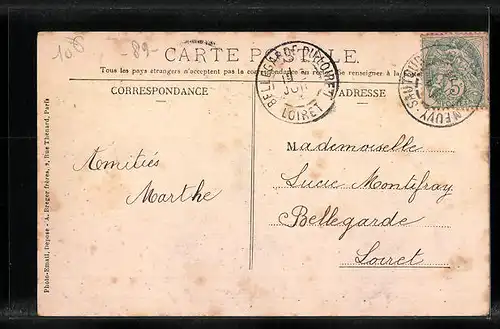 108 -89-
CARTE POSTALE.
Tous les pays étrangers n'acceptent pas la correspondance au recto, se renseigner à la
CORRESPONDANCE
ADRESSE
BELLEGARDE-DU-LOIRET
LOIRET
5
NEUVY-S
Amitiés
Marthe
Mademoiselle
Lucie Montifray
Bellegarde
Loiret
Photo-Email, Déposé - A. Breger frères, 9, Rue Thénard, Paris